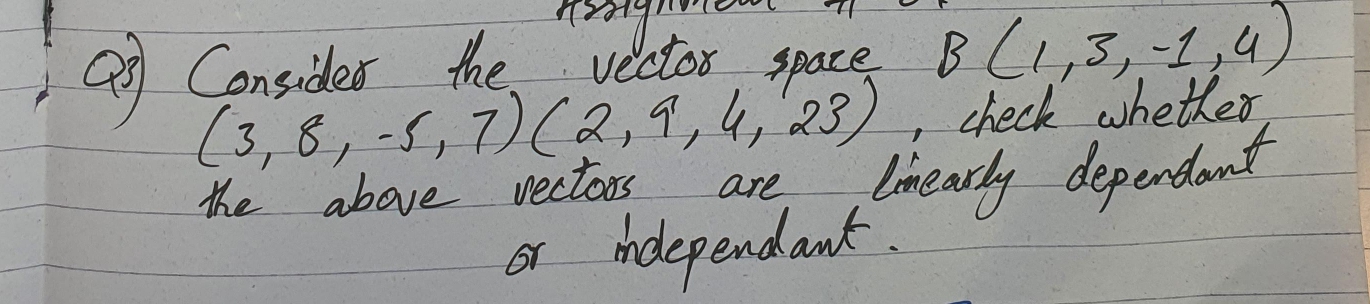 Assignment #
Q3) Consider the vector space B (1,3,-1,4)
(3, 8, -5, 7) (2, 9, 4, 23), check whether
the above vectors are linearly dependant
or independant.